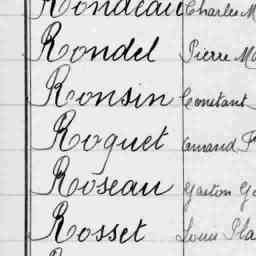 Rondeau Charles M
Rondel Pierre Ma
Ronsin Constant
Roquet Armand F
Roseau Gaston Ge
Rosset Louis Pla